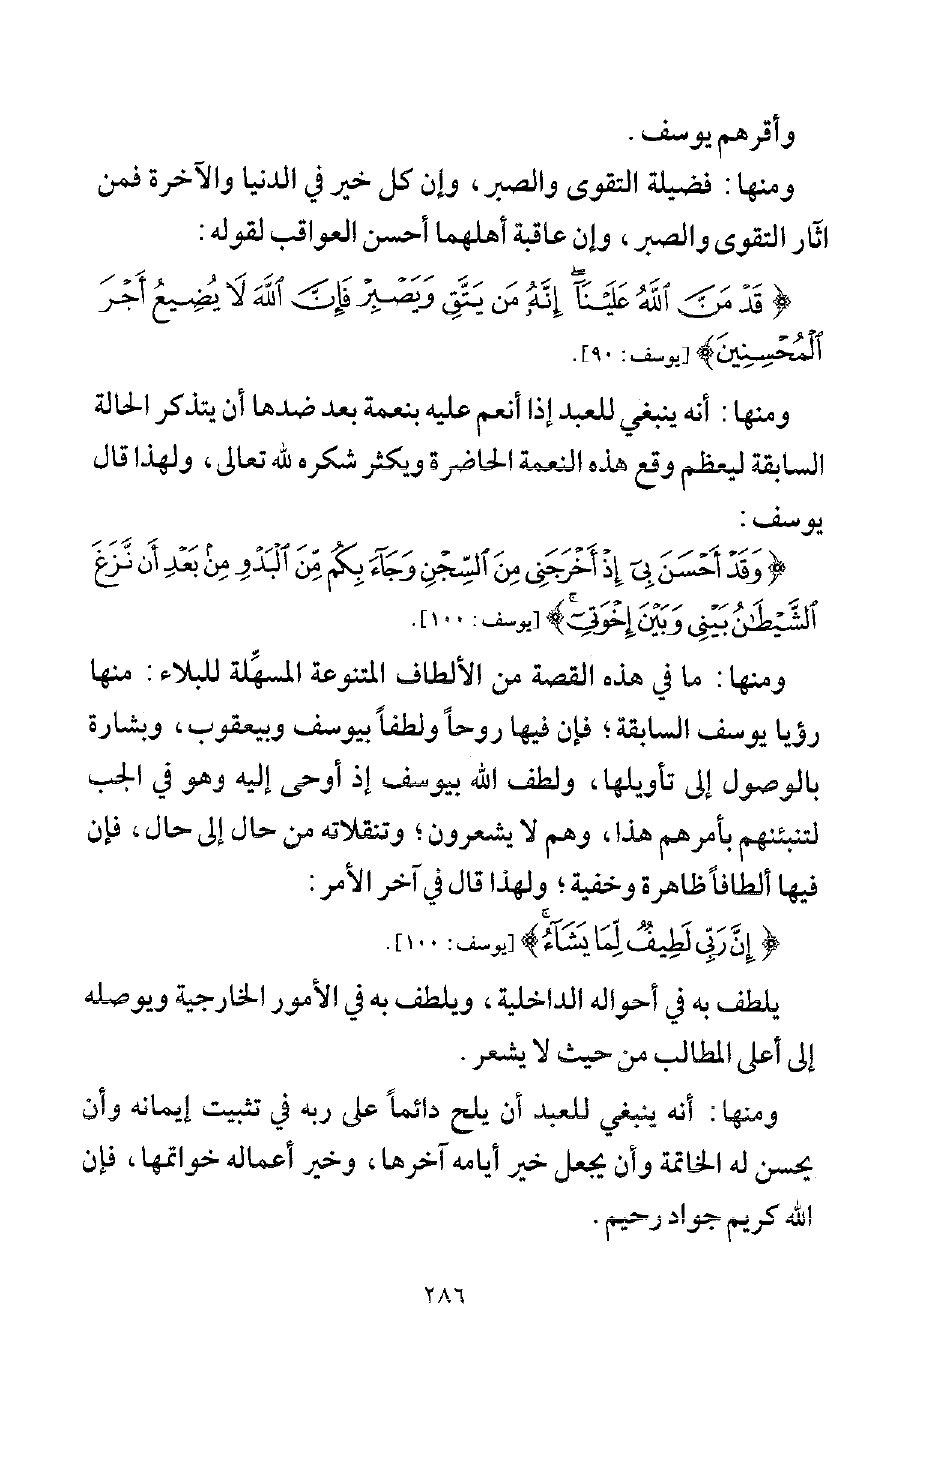 وأقرهم يوسف .
ومنها : فضيلة التقوى والصبر ، وإن كل خير في الدنيا والآخرة فمن
آثار التقوى والصبر ، وإن عاقبة أهلهما أحسن العواقب لقوله :
﴿ قَدْ مَنَّ ٱللَّهُ عَلَيْنَآۖ إِنَّهُۥ مَن يَتَّقِ وَيَصْبِرْ فَإِنَّ ٱللَّهَ لَا يُضِيعُ أَجْرَ
ٱلْمُحْسِنِينَ﴾ [يوسف : ٩٠].
ومنها : أنه ينبغي للعبد إذا أنعم عليه بنعمة بعد ضدها أن يتذكر الحالة
السابقة ليعظم وقع هذه النعمة الحاضرة ويكثر شكره لله تعالى ، ولهذا قال
يوسف :
﴿ وَقَدْ أَحْسَنَ بِىٓ إِذْ أَخْرَجَنِى مِنَ ٱلسِّجْنِ وَجَآءَ بِكُم مِّنَ ٱلْبَدْوِ مِنۢ بَعْدِ أَن نَّزَغَ
ٱلشَّيْطَٰنُ بَيْنِى وَبَيْنَ إِخْوَتِىٓۚ﴾ [يوسف : ١٠٠].
ومنها : ما في هذه القصة من الألطاف المتنوعة المسهِّلة للبلاء : منها
رؤيا يوسف السابقة؛ فإن فيها روحاً ولطفاً بيوسف وبيعقوب ، وبشارة
بالوصول إلى تأويلها، ولطف الله بيوسف إذ أوحى إليه وهو في الجب
لتنبئنهم بأمرهم هذا، وهم لا يشعرون؛ وتنقلاته من حال إلى حال، فإن
فيها ألطافاً ظاهرة وخفية؛ ولهذا قال في آخر الأمر :
﴿ إِنَّ رَبِّى لَطِيفٌ لِّمَا يَشَآءُۚ﴾ [يوسف: ١٠٠].
يلطف به في أحواله الداخلية ، ويلطف به في الأمور الخارجية ويوصله
إلى أعلى المطالب من حيث لا يشعر .
ومنها : أنه ينبغي للعبد أن يلح دائماً على ربه في تثبيت إيمانه وأن
يحسن له الخاتمة وأن يجعل خير أيامه آخرها، وخير أعماله خواتمها، فإن
الله كريم جواد رحيم .
٢٨٦